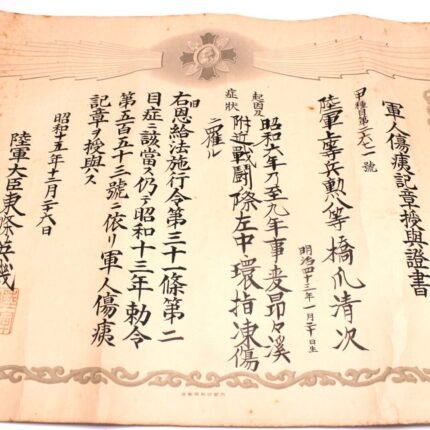 軍人傷痍記章授與證書
甲種目第 號
陸軍上等兵勲八等橋爪清次
明治四十三年一月二十日生
起因及
症狀
昭和六年乃至九年事變昂々溪
附近戰鬪際左中環指凍傷
ニ罹ル
右舊恩給法施行令第三十一條第二
目症ニ該當ス仍テ昭和十三年勅令
第五百五十三號ニ依リ軍人傷痍
記章ヲ授與ス
昭和十五年十二月二十六日
陸軍大臣東條英機